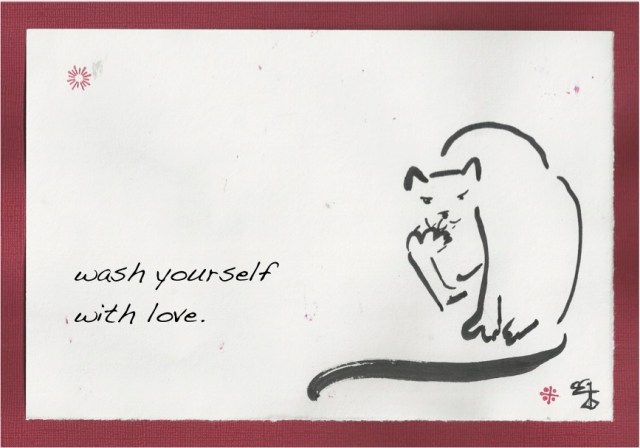 wash yourself
with love.